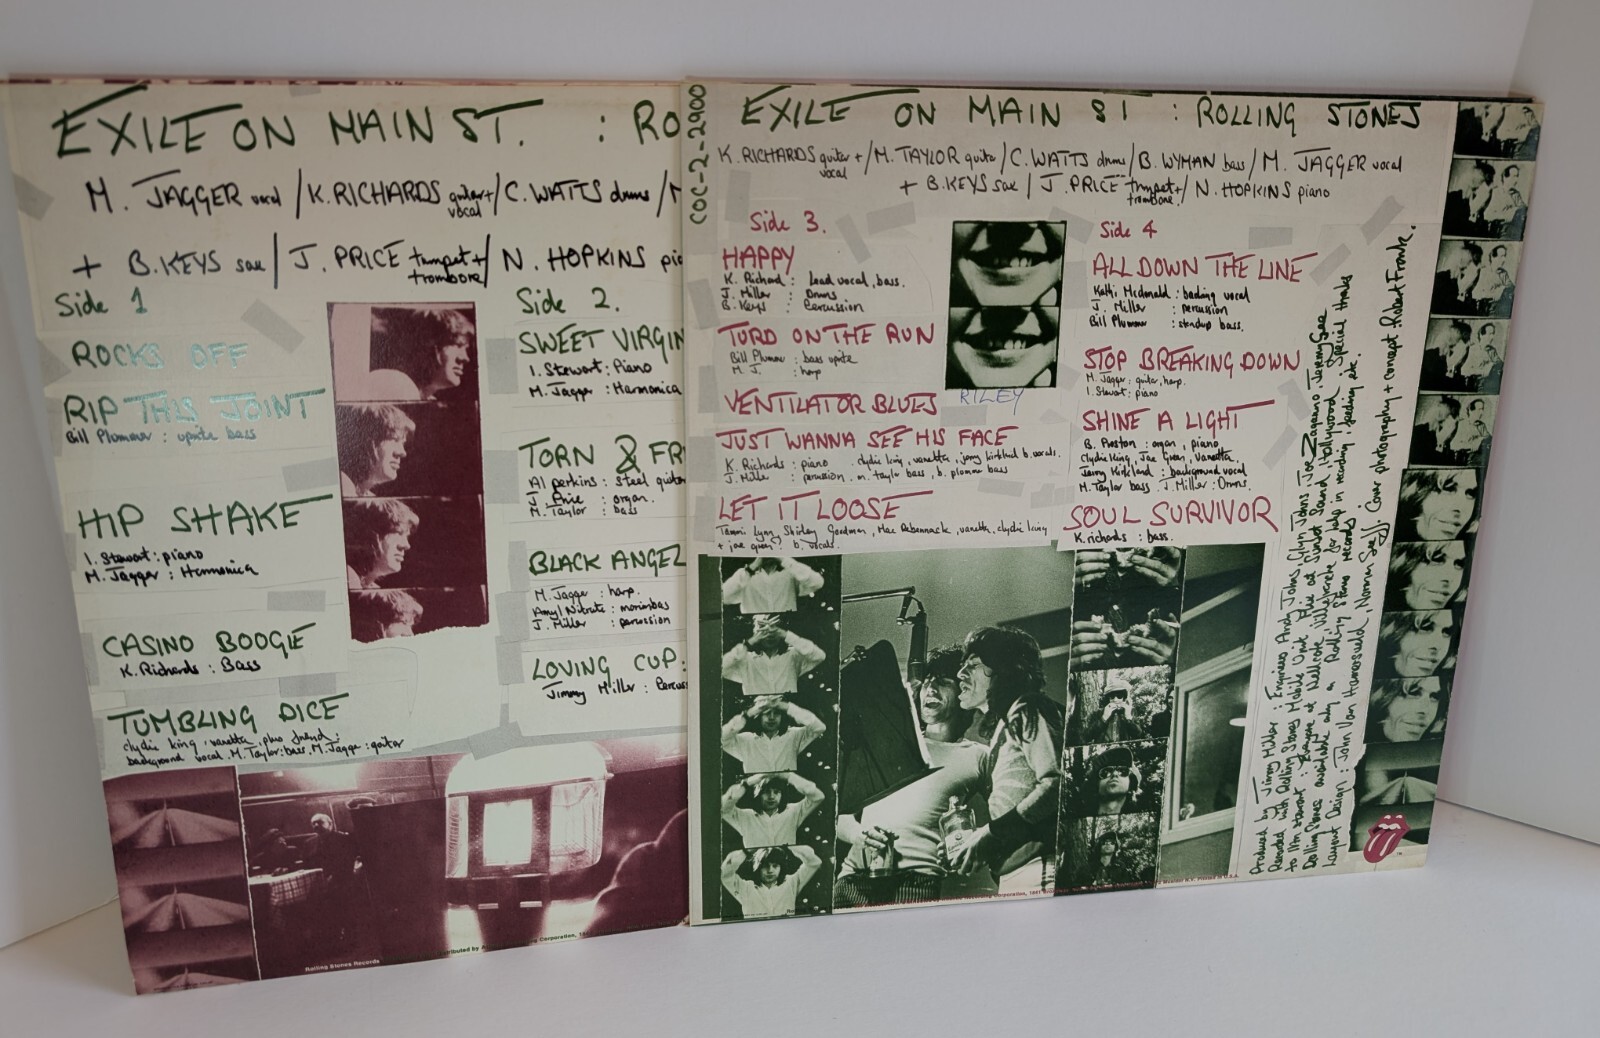 EXILE ON MAIN ST. : RO
M. JAGGER vocal / K. RICHARDS guitar + vocal / C. WATTS drums /
+ B. KEYS sax / J. PRICE trumpet + trombone / N. HOPKINS pia
Side 1
ROCKS OFF
RIP THIS JOINT
Bill Plummer : uprite bass
HIP SHAKE
I. Stewart : piano
M. Jagger : Harmonica
CASINO BOOGIE
K. Richards : Bass
TUMBLING DICE
clydie king, vanetta, plus friend :
background vocal. M. Taylor : bass. M. Jagger : guitar
Side 2.
SWEET VIRGIN
I. Stewart : Piano
M. Jagger : Harmonica
TORN & FR
Al perkins : Steel guitar
J. Price : organ.
M. Taylor : bass
BLACK ANGEL
M. Jagger : harp.
Amyl Nitrate : marimbas
J. Miller : percussion
LOVING CUP :
Jimmy Miller : Percus
Rolling Stones Records
COC-2-2900
EXILE ON MAIN ST : ROLLING STONES
K. RICHARDS guitar + vocal / M. TAYLOR guitar / C. WATTS drums / B. WYMAN bass / M. JAGGER vocal
+ B. KEYS sax / J. PRICE trumpet + trombone. / N. HOPKINS piano
Side 3.
HAPPY
K. Richard : Lead vocal, bass.
J. Miller : Drums
B. Keys : Percussion
TURD ON THE RUN
Bill Plummer : bass uprite
M. J. : harp
VENTILATOR BLUES
RILEY
JUST WANNA SEE HIS FACE
K. Richards : piano . clydie king, vanetta, jerry kirkland b. vocals.
J. Miller : percussion. m. taylor bass, b. plummer bass
LET IT LOOSE
Tammi Lynn, Shirley Goodman, Mac Rebennack, vanetta, clydie king
+ joe green : b. vocals.
Side 4
ALL DOWN THE LINE
Kathi Mcdonald : backing vocal
J. Miller : percussion
Bill Plummer : standup bass.
STOP BREAKING DOWN
M. Jagger : guitar, harp.
I. Stewart : piano
SHINE A LIGHT
B. Preston : organ, piano
Clydie King, Joe Green, Vanetta,
Jerry Kirkland : background vocal
M. Taylor bass . J. Miller : Drums.
SOUL SURVIVOR
K. richards : bass.
Produced by Jimmy Miller : Engineers Andy Johns, Glyn Johns, Joe Zagarino, Jeremy Gee
Recorded with Rolling Stones Mobile Unit + at Sunset Sound, Hollywood. Special thanks
to Ian stewart : everyone at Nellcote, Villefranche for help in recording, feeding etc.
Rolling Stones available only on Rolling Stones records
Layout Design : John Van Hamersveld, Norman Seeff : Cover photography + concept : Robert Frank.